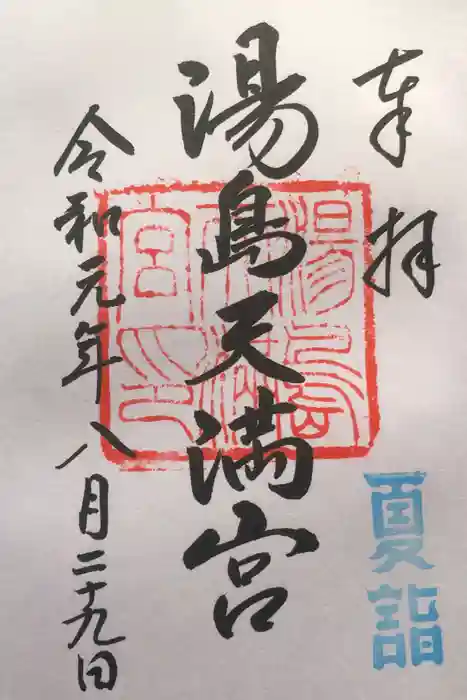 奉拝
夏詣
湯島天満宮
湯島天満宮之印
令和元年八月二十九日